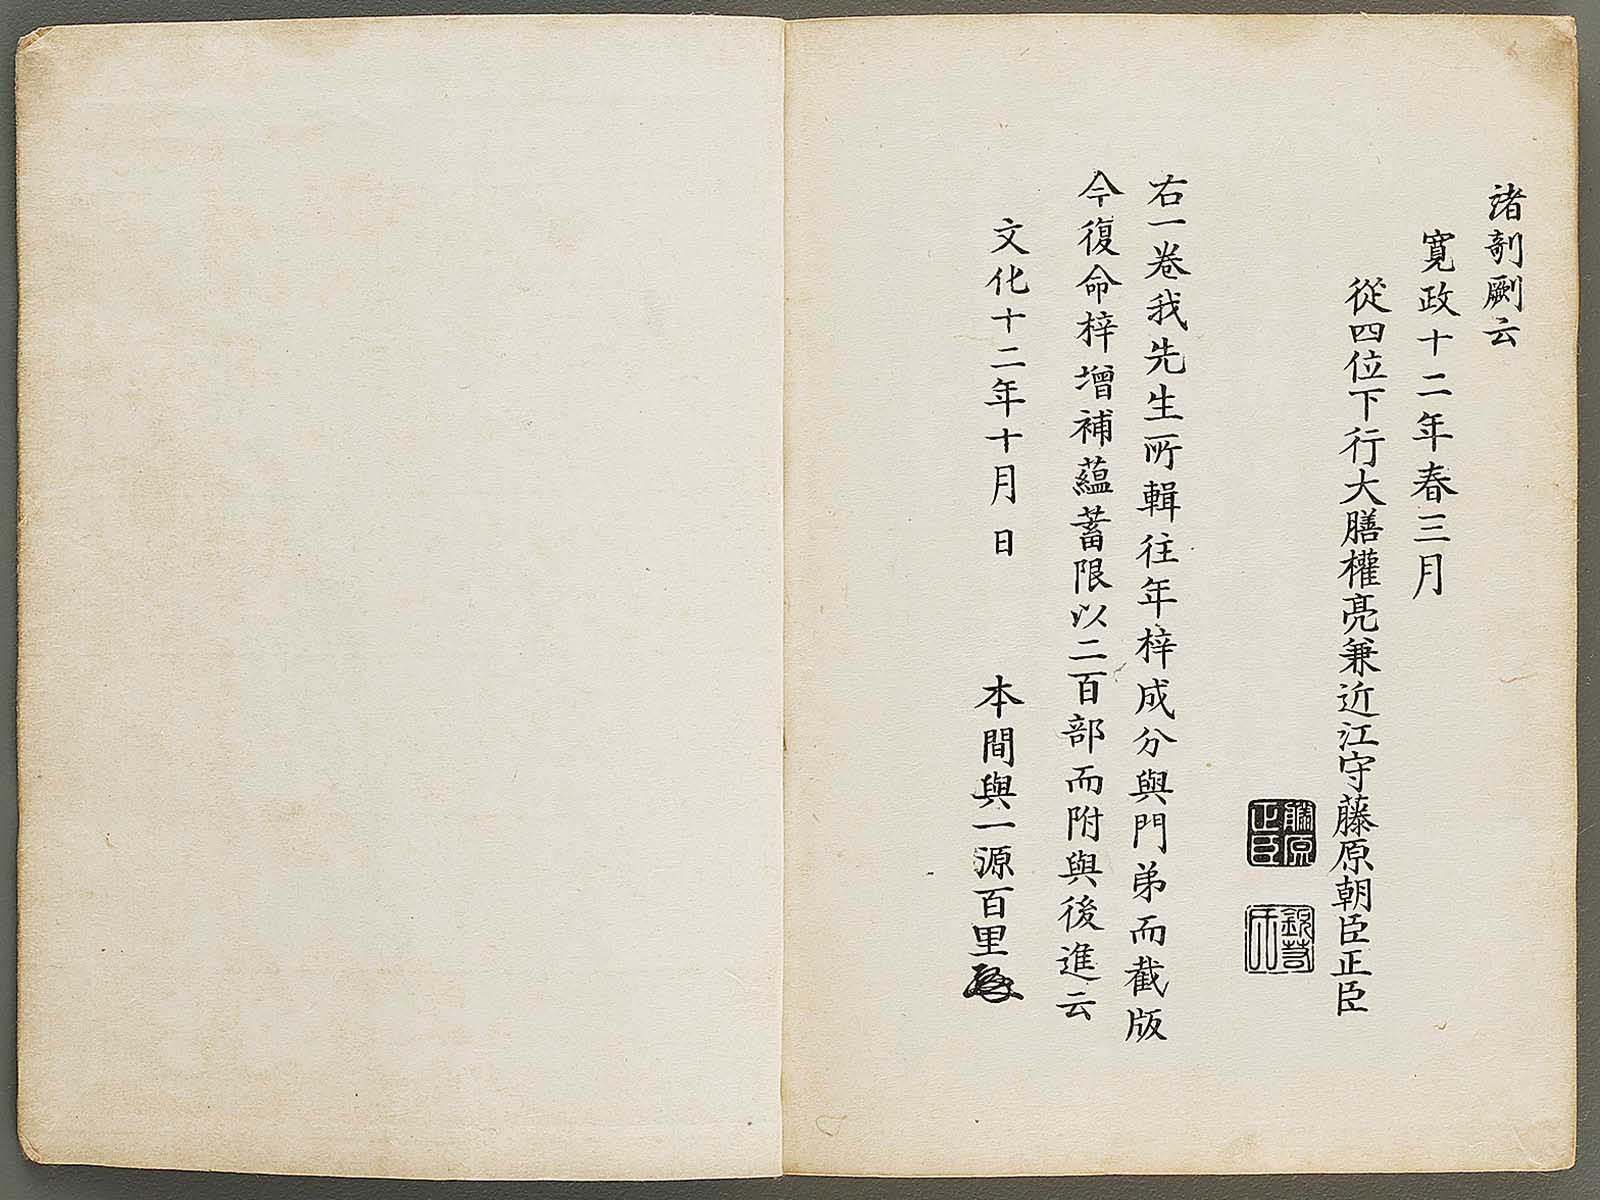 諸剞劂云
寛政十二年春三月
從四位下行大膳權亮兼近江守藤原朝臣正臣
藤原正臣
右一卷我先生所輯往年梓成分與門弟而截版
今復命梓增補蘊蓄限以二百部而附與後進云
文化十二年十月 日
本間與一源百里